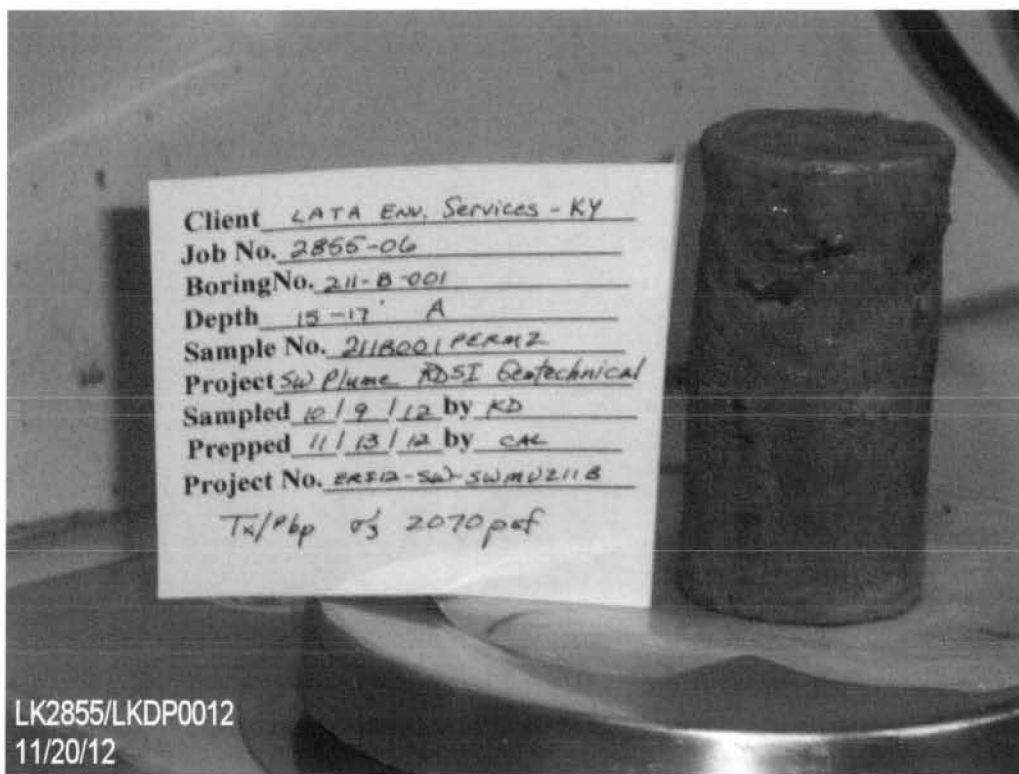 Client LATA Env. Services - KY
Job No. 2855-06
BoringNo. 211-B-001
Depth 15-17' A
Sample No. 211B001 PERM2
Project SW Plume RDSI Geotechnical
Sampled 10/9/12 by KD
Prepped 11/13/12 by CAL
Project No. ERI12-SW-SWMU211B
Tx/Pbp σ3 2070 psf
LK2855/LKDP0012
11/20/12